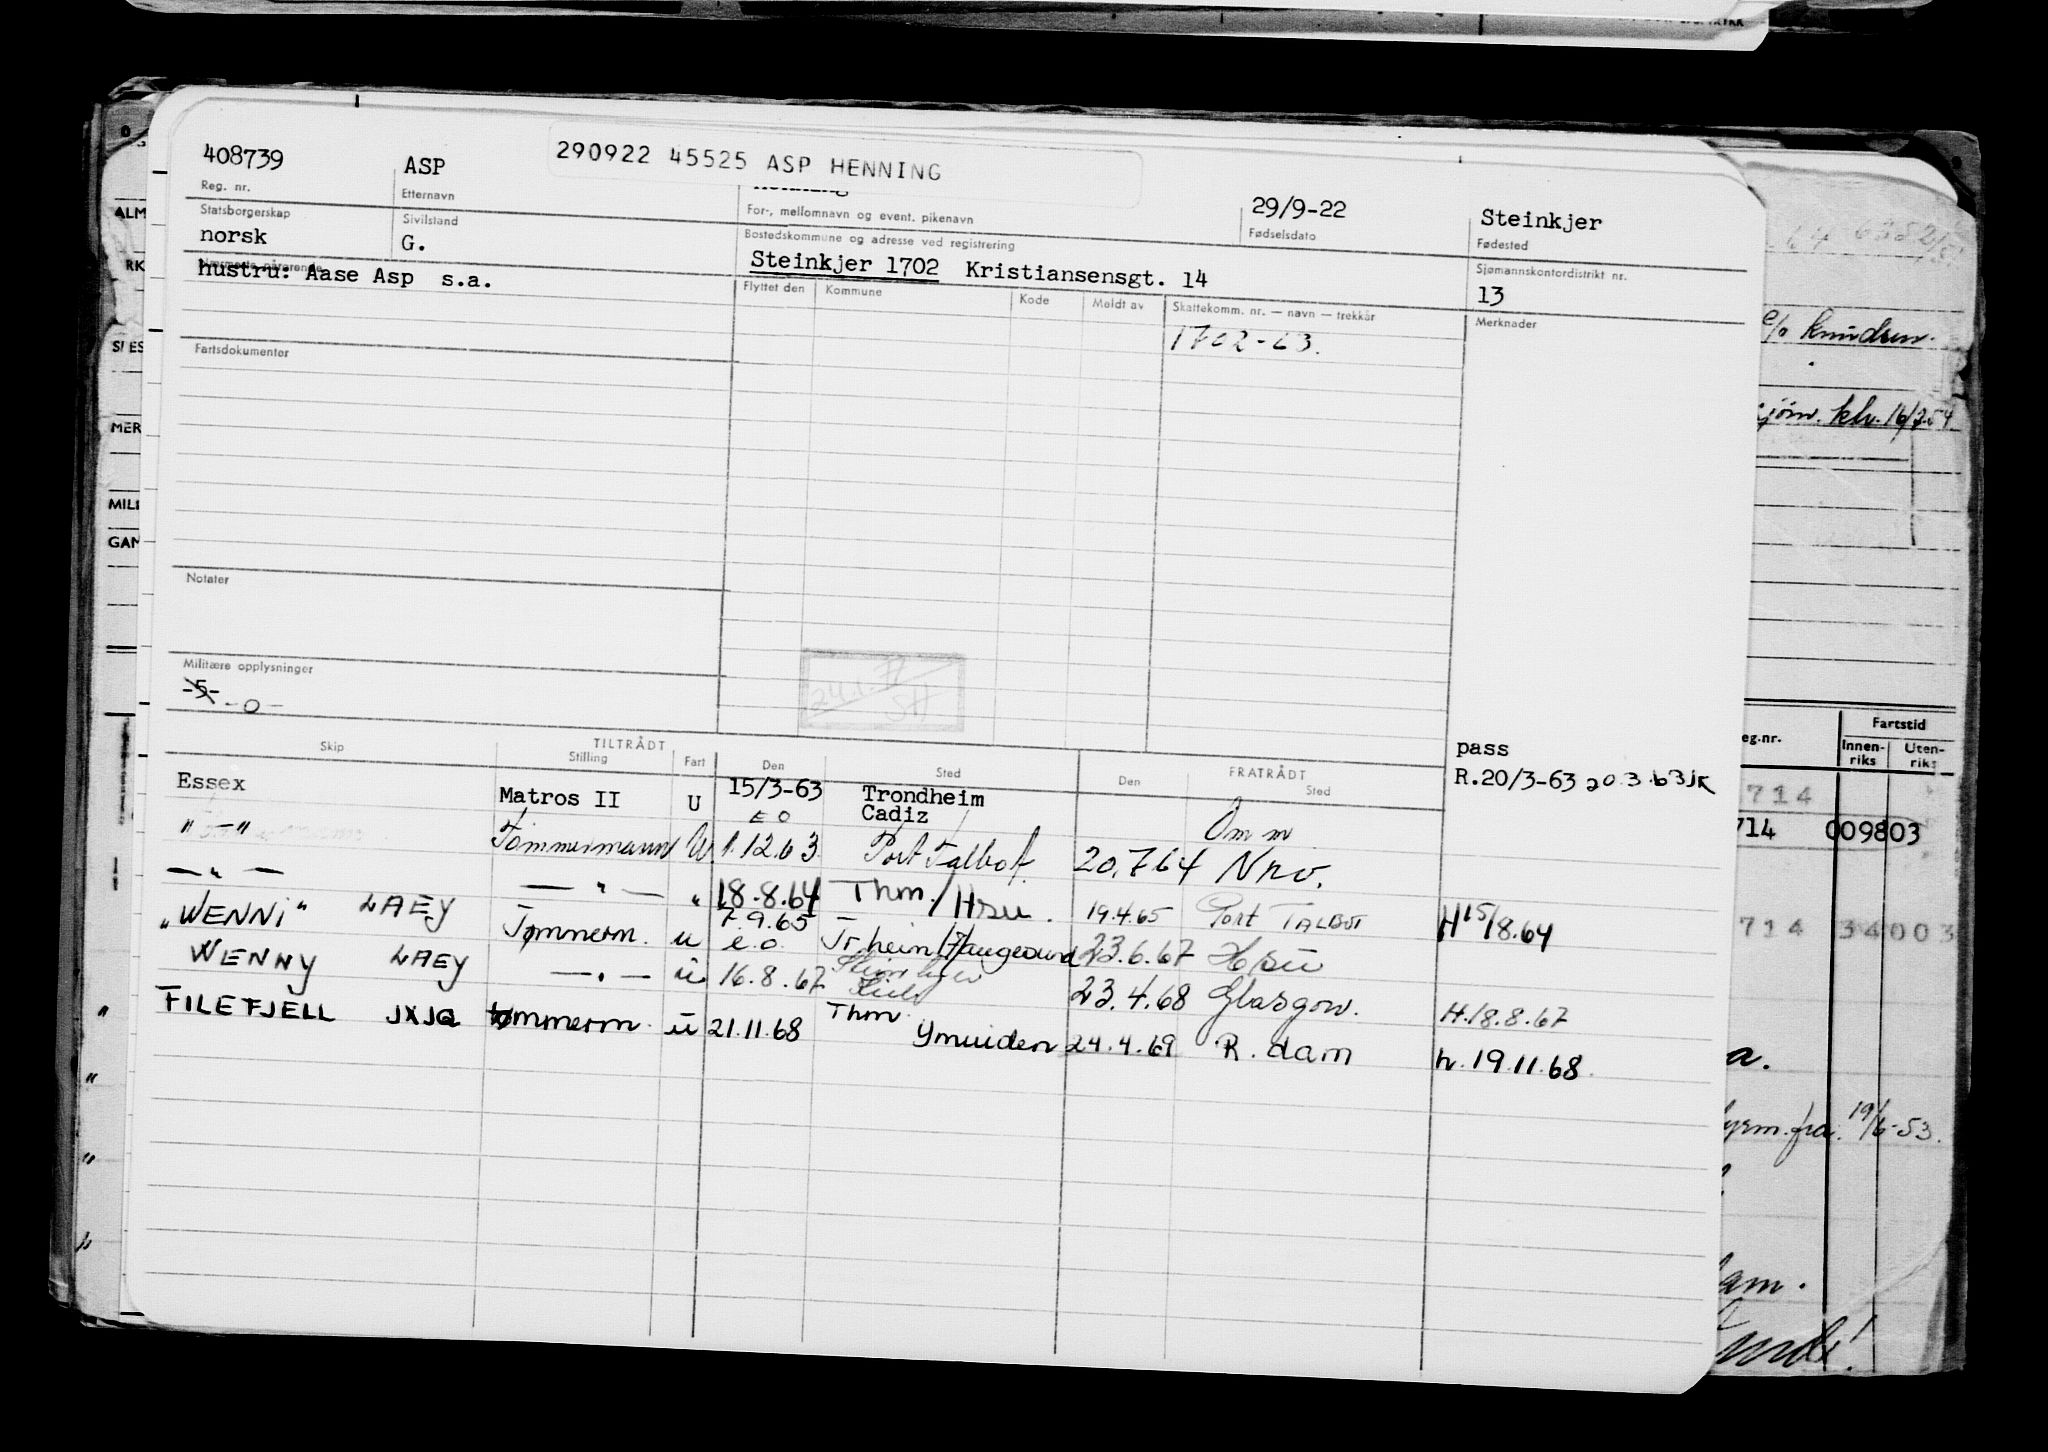 290922 45525 ASP HENNING
408739 ASP 29/9-22 Steinkjer
Reg. nr. Etternavn For-, mellomnavn og event. pikenavn Fødselsdato Fødested
Statsborgerskap Sivilstand Bostedskommune og adresse ved registrering Sjømannskontordistrikt nr.
norsk G. Steinkjer 1702 Kristiansensgt. 14 13
hustru: Aase Asp s.a.
Flyttet den Kommune Kode Meldt av Skattekomm. nr. — navn — trekkår Merknader
1702-63.
Fartsdokumenter
Notater
Militære opplysninger
-5- -0-
24.1.77
SH
TILTRÅDT FRATRÅDT
Skip Stilling Fart Den Sted Den Sted
pass
R.20/3-63 20.3.63JK
Essex Matros II U 15/3-63 Trondheim
E O Cadiz Om m
" — " Tømmermann U 1.12.63 Port Talbot 20.7.64 Nrv.
— " — — " — " 18.8.64 Thm./Hsu. 19.4.65 Port TALBOT H15/8.64
"WENNI" LAEY Tømmerm. u 7.9.65 e.o. Tr.heim/Haugesund 23.6.67 Hsu
WENNY LAEY — " — u 16.8.67 23.4.68 Glasgow. H.18.8.67
FILEFJELL JXJQ tømmerm. u 21.11.68 Thm Ymuiden 24.4.69 R.dam h.19.11.68
ALM
RK
MER
MILI
GAN
c/o Knudsen.
klv. 16/2-54
eg.nr. Fartstid
Innen-riks Uten-riks
714
714 009803
714 34003
a.
fra 19/6-53.
am.